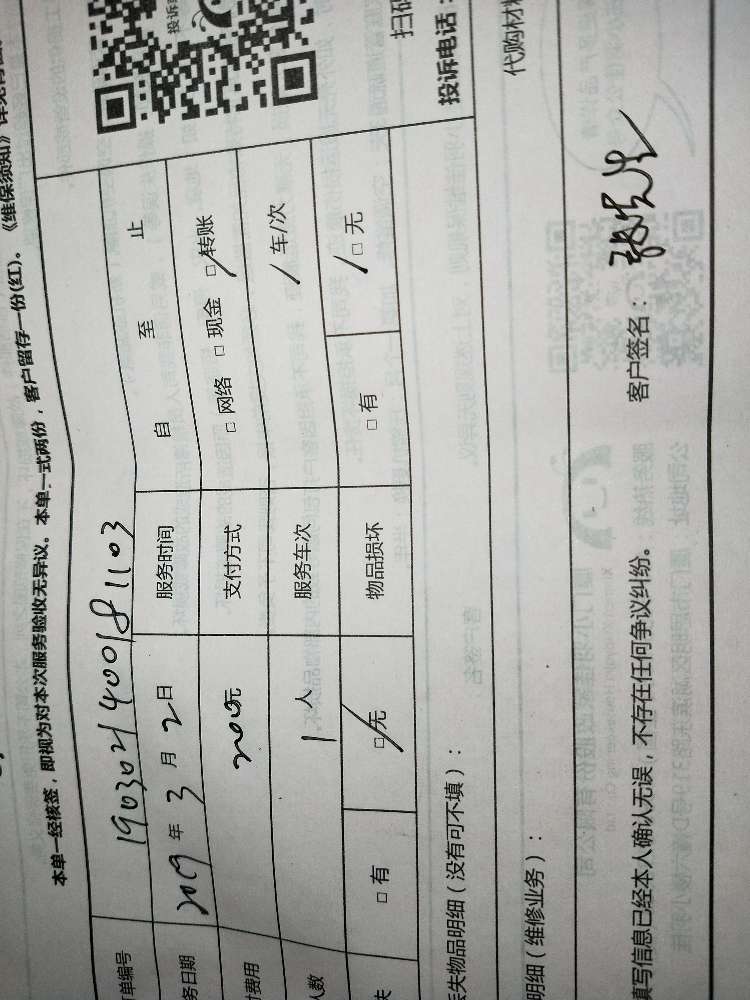 《维保须知》
本单一经核签，即视为对本次服务验收无异议。本单一式两份，客户留存一份(红)。
单编号 190302140018 1103
务日期 2019 年 3 月 2 日 服务时间 自 至 止
费用 200元 支付方式 □ 网络 □ 现金 □ 转账
人数 1 人 服务车次 / 车/次
失 □ 有 □ 无 物品损坏 □ 有 □ 无
扫码
投诉电话：
失物品明细（没有可不填）：
代购材料
明细（维修业务）：
填写信息已经本人确认无误，不存在任何争议纠纷。 客户签名： 张先生